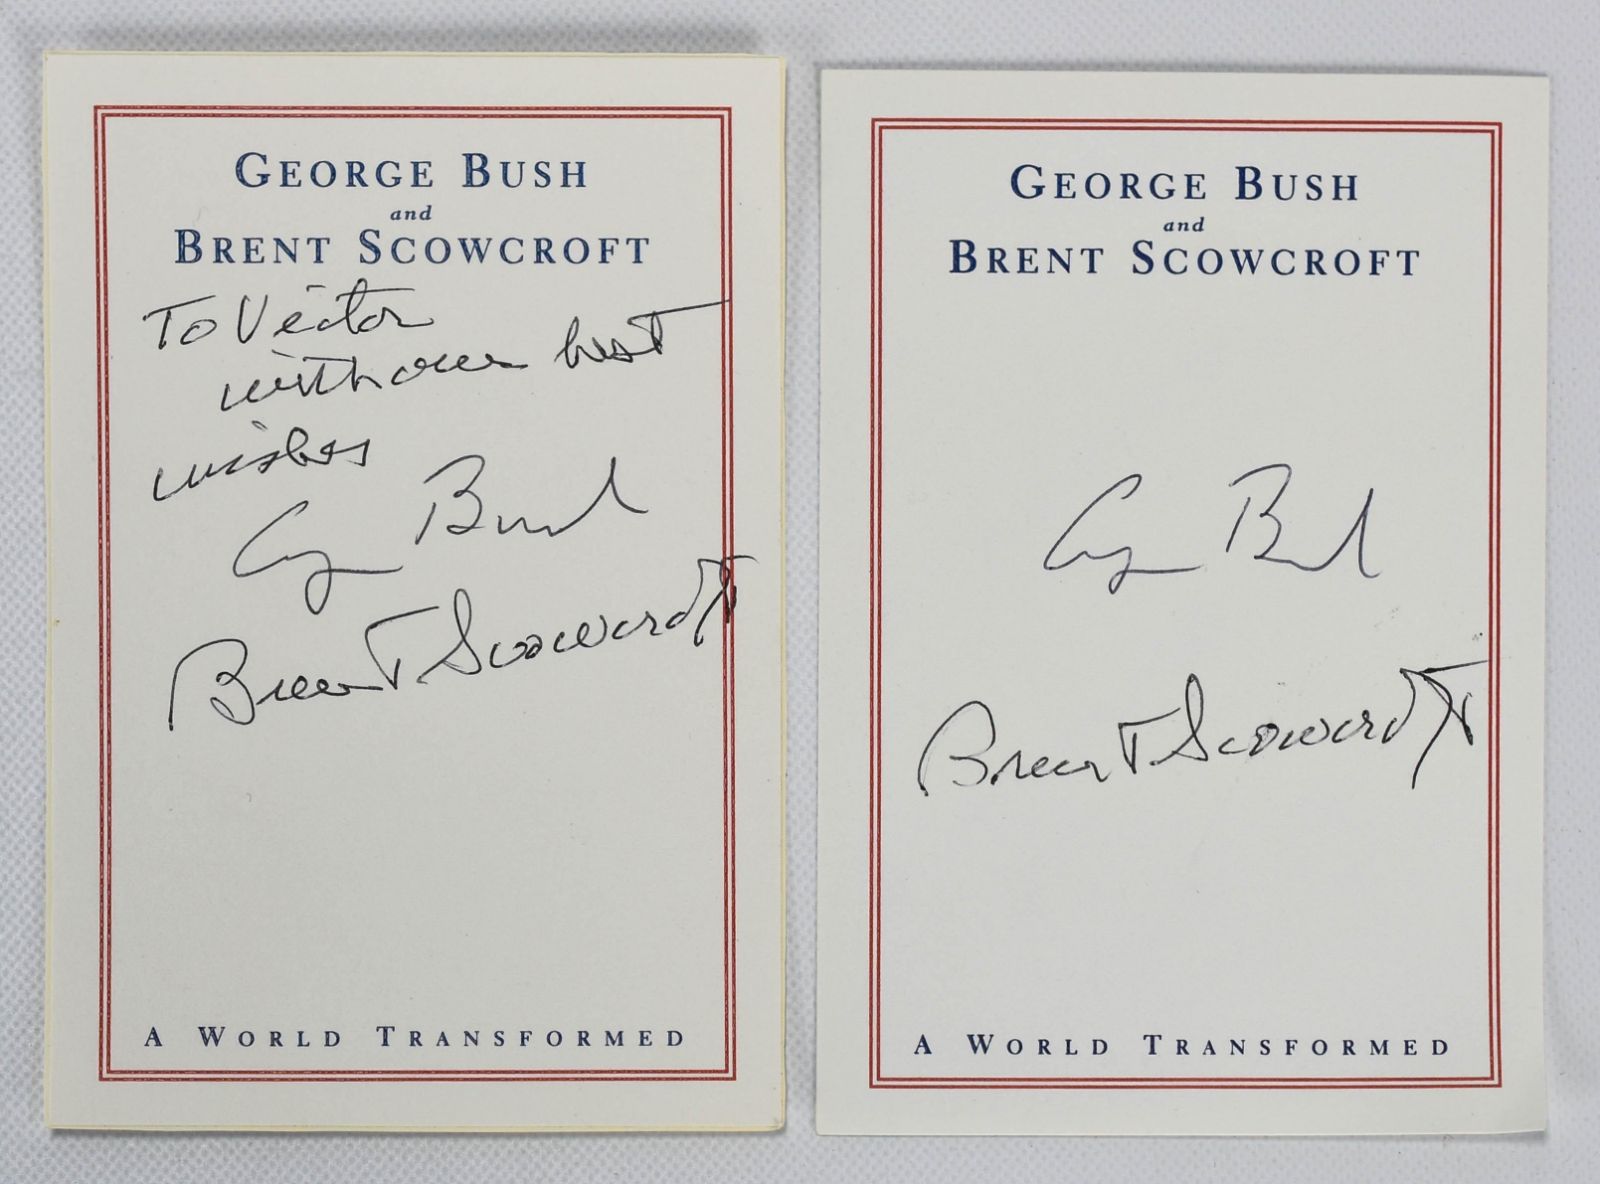 GEORGE BUSH
and
BRENT SCOWCROFT
To Victor
with our best
wishes
George Bush
Brent Scowcroft
A WORLD TRANSFORMED
GEORGE BUSH
and
BRENT SCOWCROFT
George Bush
Brent Scowcroft
A WORLD TRANSFORMED